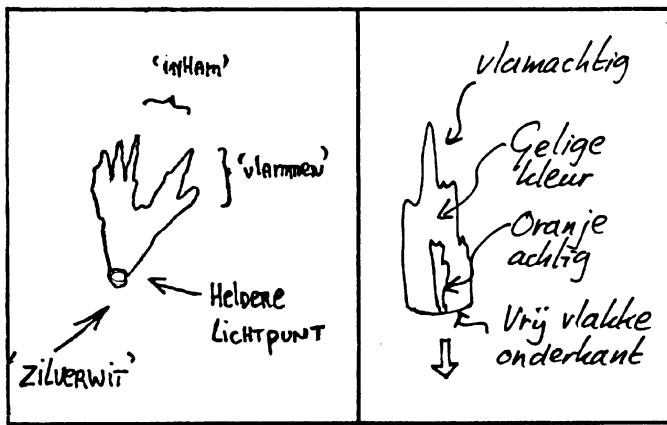 'inHam'
'vlammen'
Heldere
Lichtpunt
'Zilverwit'
vlamachtig
Gelige
kleur
Oranje
achtig
Vrij vlakke
onderkant